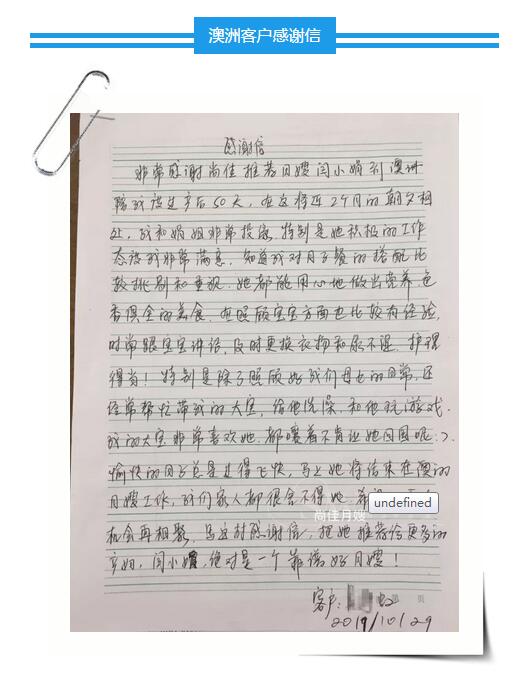 澳洲客户感谢信
感谢信
非常感谢尚佳推荐月嫂闫小娟到澳洲
陪我度过产后50天，在这将近2个月的朝夕相
处，我和娟姐非常投缘，特别是她积极的工作
态度我非常满意，知道我对月子餐的搭配比
较挑剔和重视，她都能用心地做出营养色
香俱全的美食，在照顾宝宝方面也比较有经验，
时常跟宝宝讲话，及时更换衣物和尿不湿，护理
得当！特别是除了照顾好我们母女的日常，还
经常帮忙带我的大宝，给他洗澡，和他玩游戏，
我的大宝非常喜欢她，都嚷着不肯让她回国呢：）
愉快的日子总是过得飞快，马上她将结束在澳的
月嫂工作，我们家人都很舍不得她
undefined
尚佳月嫂
机会再相聚，写这封感谢信，把她推荐给更多的
产妇，闫小娟，绝对是一个靠谱好月嫂！
客户：
第 页
2019/10/29